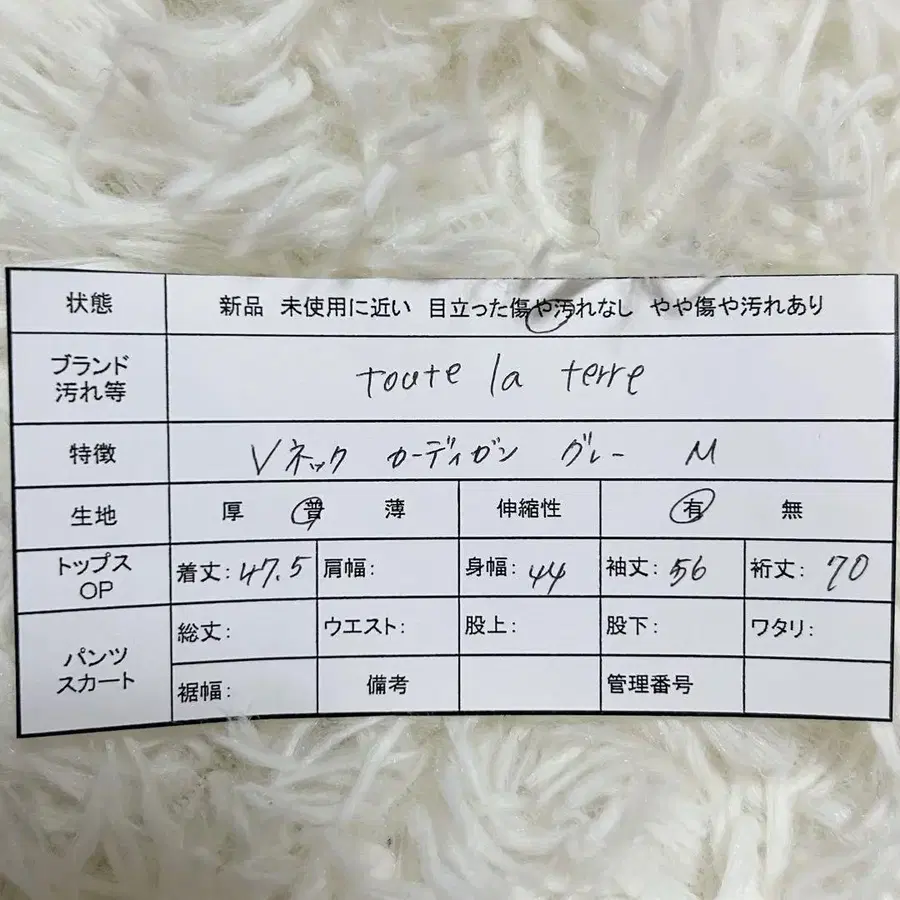 状態 新品 未使用に近い 目立った傷や汚れなし やや傷や汚れあり
ブランド
汚れ等 toute la terre
特徴 Vネック カーディガン グレー M
生地 厚 普 薄 伸縮性 有 無
トップス
OP 着丈: 47.5 肩幅: 身幅: 44 袖丈: 56 裄丈: 70
パンツ
スカート 総丈: ウエスト: 股上: 股下: ワタリ:
裾幅: 備考 管理番号